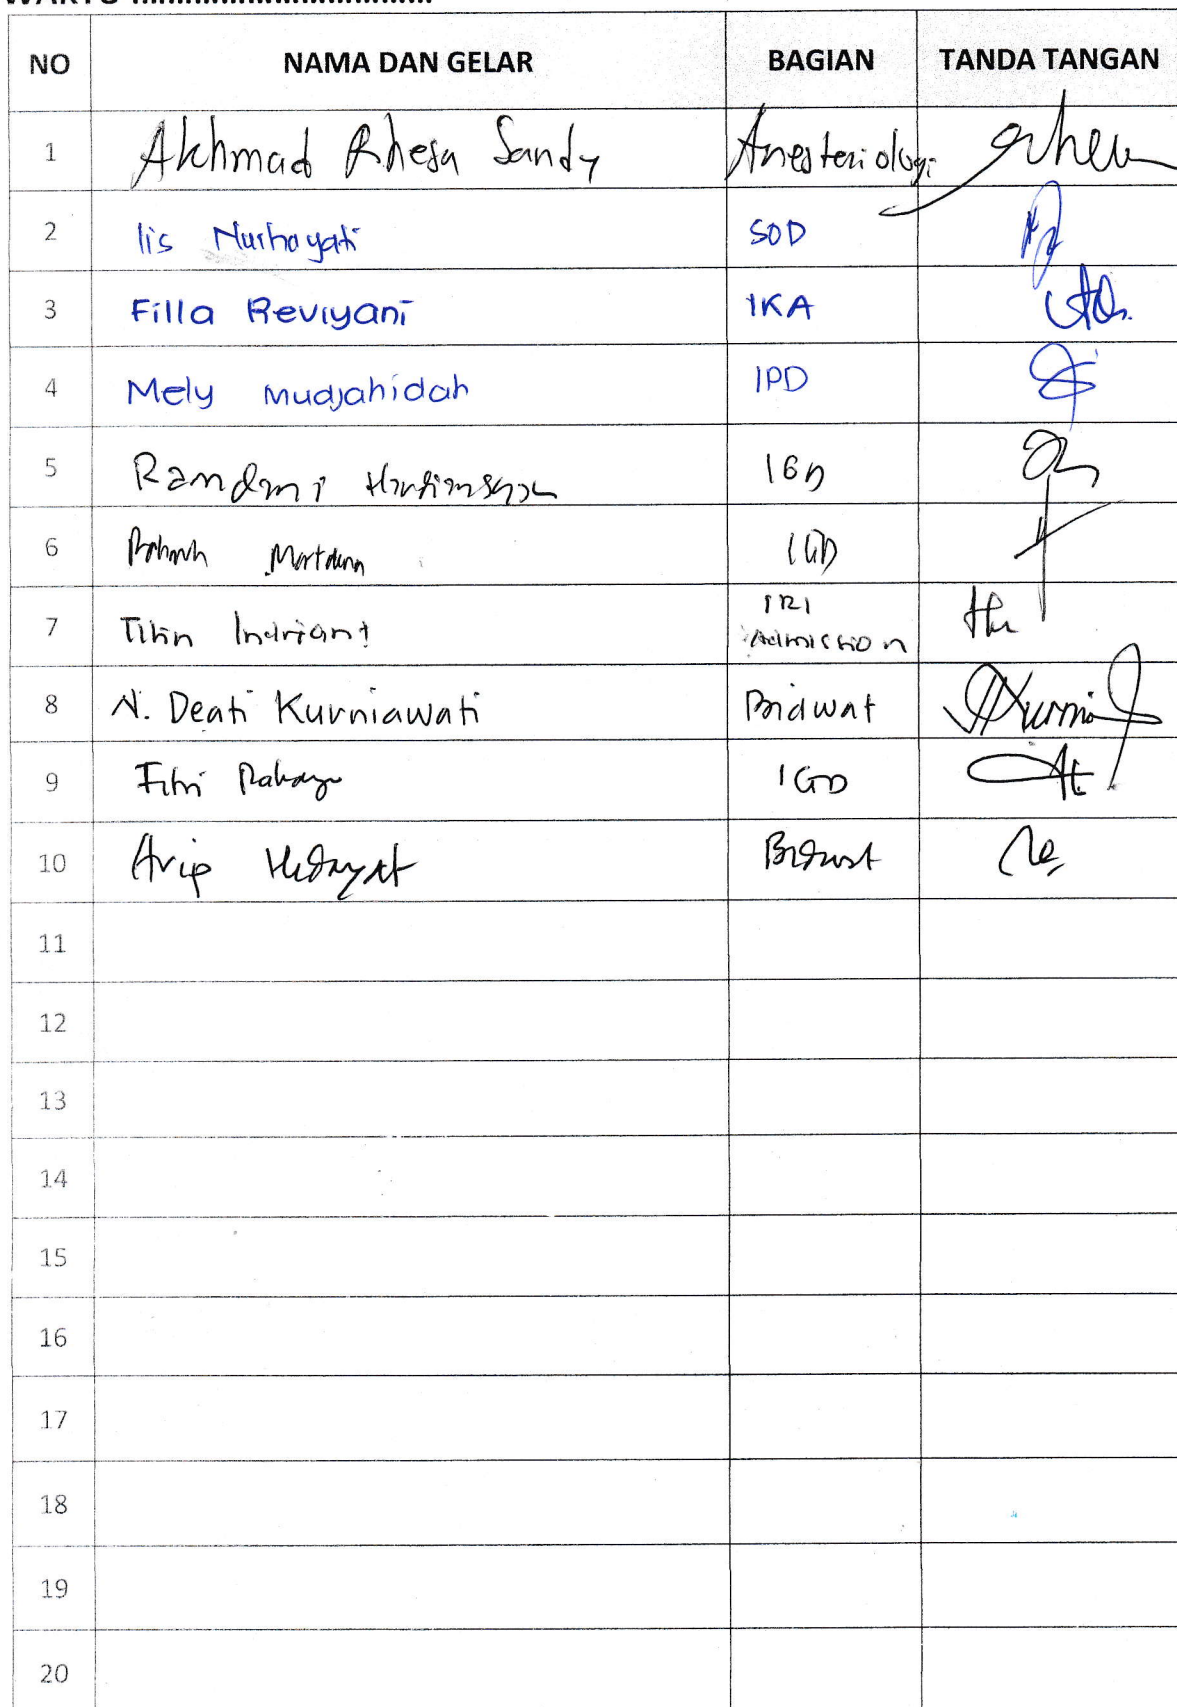 NO NAMA DAN GELAR BAGIAN TANDA TANGAN
1 Akhmad Rhesa Sandy Anestesiologi
2 Iis Nurhayati SOD
3 Filla Reviyani IKA
4 Mely Mudjahidah IPD
5 IGD
6 IGD
7 Titin Indriani IRI
Admission
8 N. Deati Kurniawati Bidwat
9 Fitri Rahayu IGD
10 Arip Hidayat Bidwat
11
12
13
14
15
16
17
18
19
20